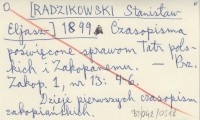 [RADZIKOWSKI Stanisław
Eljasz] 1899 Czasopisma
poświęcone sprawom Tatr pols-
kich i Zakopanemu. — Prz.
Zakop. 1, nr 13: 4-6.
Dzieje pierwszych czasopism
zakopiańskich.